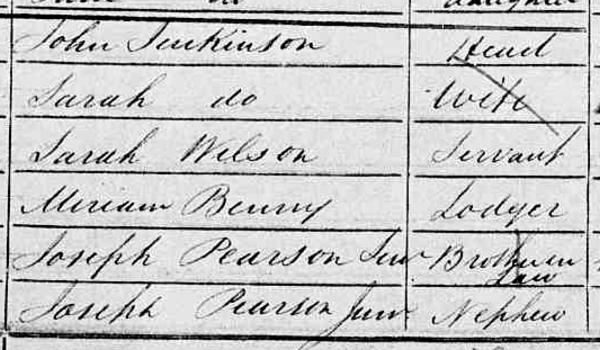 do daughter
John Jenkinson Head
Sarah do Wife
Sarah Wilson Servant
Miriam Benny Lodger
Joseph Pearson Senr Brother in Law
Joseph Pearson Junr Nephew